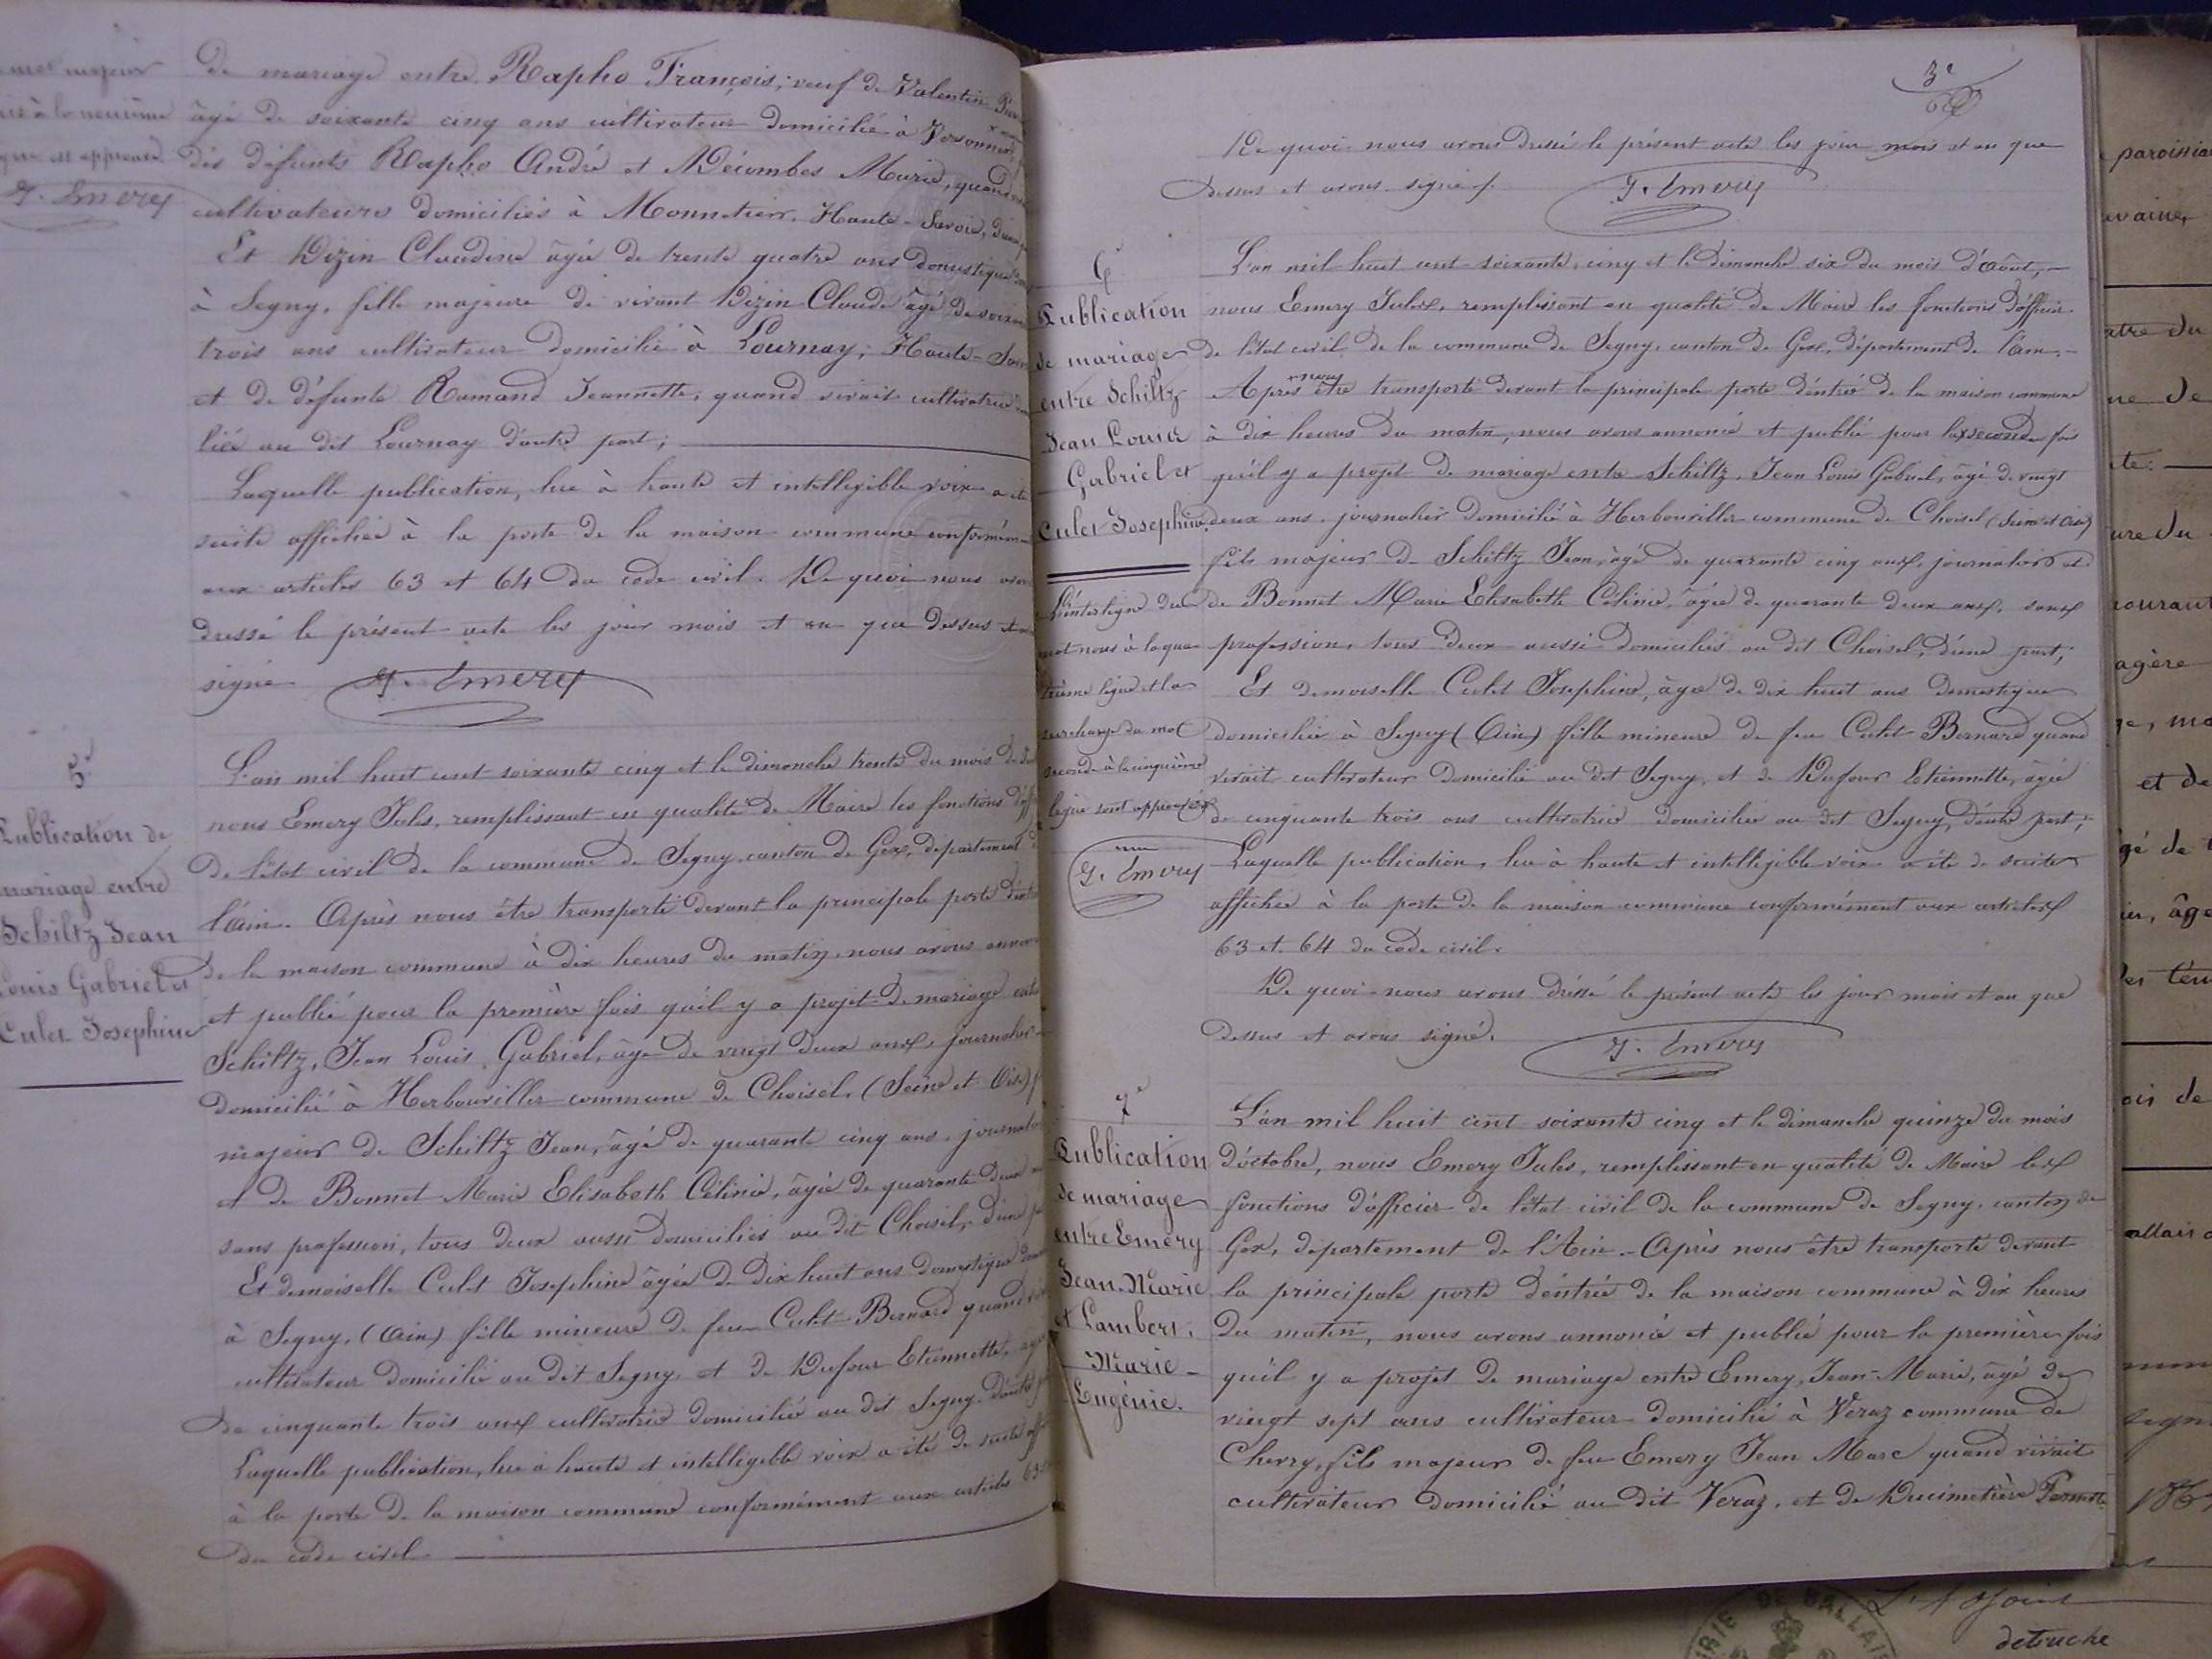 majeur
est approuvé
J. Emery
de mariage entre Rapho François, veuf de Valentin
âgé de soixante cinq ans cultivateur domicilié à Versonnex
des défunts Rapho André et Décombes Marie, quand
cultivateurs domiciliés à Monnetier, Haute-Savoie, d'une
Et Dizin Claudine âgée de trente quatre ans domestique
à Segny, fille majeure de vivant Dizin Claude âgé de
trois ans cultivateur domicilié à Lournay, Haute-
et de défunte Ramand Jeannette, quand vivait cultivatrice
liée au dit Lournay d'autre part;
Laquelle publication, lue à haute et intelligible voix a été
suite affichée à la porte de la maison commune
aux articles 63 et 64 du code civil. De quoi nous
dressé le présent acte les jour mois et an que dessus et
signé J. Emery
5e
Publication de
mariage entre
Schiltz Jean
Louis Gabriel et
Culet Josephine
L'an mil huit cent soixante cinq et le dimanche trente du mois de
nous Emery Jules, remplissant en qualité de Maire les fonctions
de l'état civil de la commune de Segny, canton de Gex, département
l'ain. Après nous être transporté devant la principale porte
de la maison commune à dix heures du matin, nous avons
et publié pour la première fois qu'il y a projet de mariage
Schiltz, Jean Louis Gabriel, âgé de vingt deux ans, journalier
domicilié à Herbouviller commune de Choisel, (Seine et Oise)
majeur de Schiltz Jean, âgé de quarante cinq ans, journalier
et de Bonnet Marie Elisabeth Célinie, âgée de quarante deux
sans profession, tous deux aussi domiciliés au dit Choisel, d'une
Et demoiselle Culet Josephine âgée de dix huit ans domestique
à Segny, (Ain) fille mineure de feu Culet Bernard quand
cultivateur domicilié au dit Segny, et de Dufour Etiennette,
de cinquante trois ans cultivatrice domiciliée au dit Segny d'autre
Laquelle publication, lue à haute et intelligible voix a été de suite
à la porte de la maison commune conformément aux articles 63
du code civil.
3e
De quoi nous avons dressé le présent acte les jour mois et an que
dessus et avons signé. J. Emery
6e
Publication
de mariage
entre Schiltz
Jean Louis
Gabriel et
Culet Josephine
L'interligne du
mot nous à la qua
trième ligne et la
surcharge du mot
seconde à la cinquième
ligne sont approuvés
J. Emery
L'an mil huit cent soixante cinq et le dimanche six du mois d'août,
nous Emery Jules, remplissant en qualité de Maire les fonctions d'officier
de l'état civil de la commune de Segny, canton de Gex, département de l'ain.
Après nous être transporté devant la principale porte d'entrée de la maison commune
à dix heures du matin, nous avons annoncé et publié pour la seconde fois
qu'il y a projet de mariage entre Schiltz, Jean Louis Gabriel, âgé de vingt
deux ans, journalier domicilié à Herbouviller commune de Choisel (Seine et Oise)
fils majeur de Schiltz Jean, âgé de quarante cinq ans, journalier et
de Bonnet Marie Elisabeth Célinie, âgée de quarante deux ans, sans
profession, tous deux aussi domiciliés au dit Choisel, d'une part;
Et demoiselle Culet Josephine, âgée de dix huit ans domestique
domiciliée à Segny (Ain) fille mineure de feu Culet Bernard quand
vivait cultivateur domicilié au dit Segny, et de Dufour Etiennette, âgée
de cinquante trois ans cultivatrice domiciliée au dit Segny, d'autre part;
Laquelle publication, lue à haute et intelligible voix a été de suite
affichée à la porte de la maison commune conformément aux articles
63 et 64 du code civil.
De quoi nous avons dressé le présent acte les jour mois et an que
dessus et avons signé. J. Emery
7e
Publication
de mariage
entre Emery
Jean-Marie
et Lambert,
Marie-
Eugénie.
L'an mil huit cent soixante cinq et le dimanche quinze du mois
d'octobre, nous Emery Jules, remplissant en qualité de Maire les
fonctions d'officier de l'état civil de la commune de Segny, canton de
Gex, département de l'Ain. Après nous être transporté devant
la principale porte d'entrée de la maison commune à dix heures
du matin, nous avons annoncé et publié pour la première fois
qu'il y a projet de mariage entre Emery, Jean-Marie, âgé de
vingt sept ans cultivateur domicilié à Veraz commune de
Chevry, fils majeur de feu Emery Jean Marc quand vivait
cultivateur domicilié au dit Veraz, et de Ducimetière Pernette
et de
agère
ure du
ois de
detruche